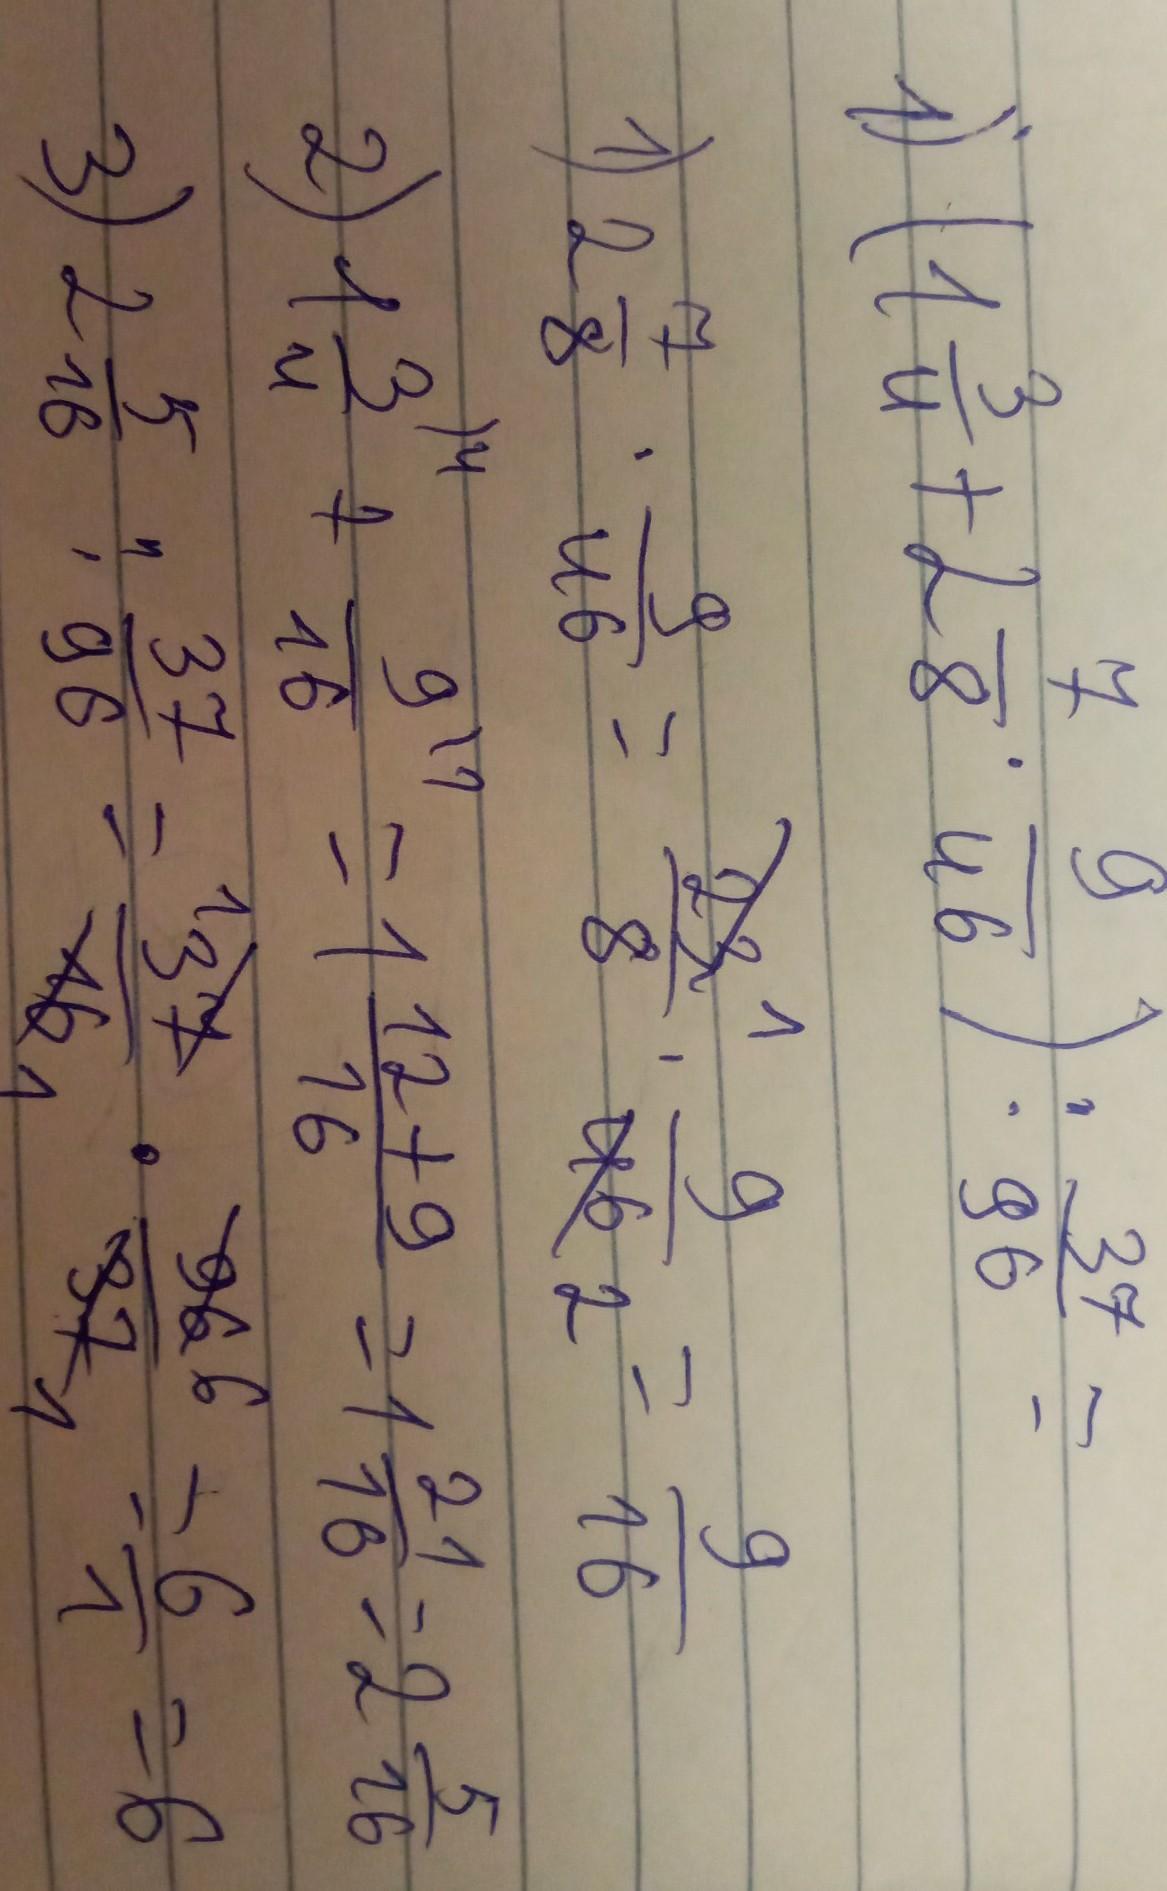 1) (1 3/4 + 2 7/8 · 9/46) : 37/96 =
1) 2 7/8 · 9/46 = 23/8 1 · 9/46 2 = 9/16
2) 1 3/4 \4 + 9/16 \1 = 1 12+9/16 = 1 21/16 = 2 5/16
3) 2 5/16 : 37/96 = 1 37/16 1 · 96 6/37 1 = 6/1 = 6